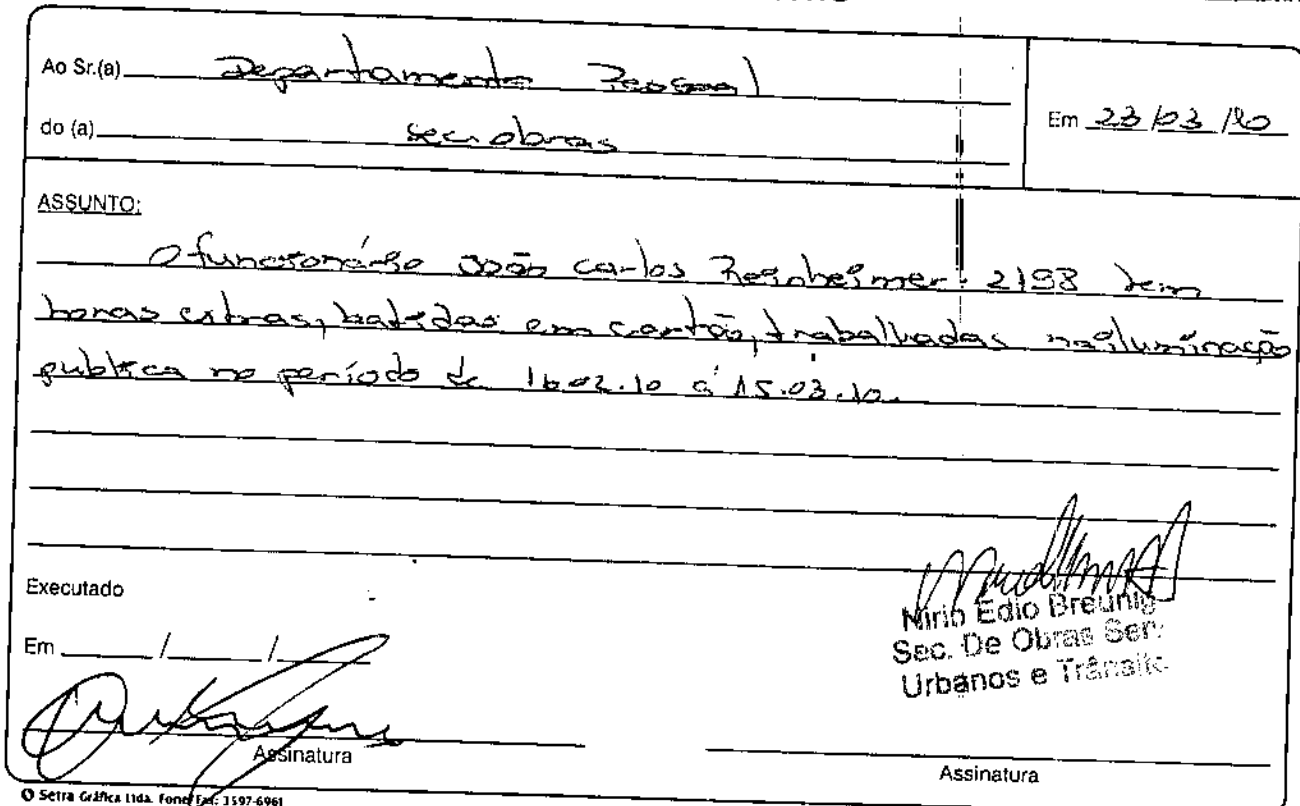 Ao Sr.(a) Departamento Pessoal
do (a) Sec. obras
Em 23/03/10
ASSUNTO:
O funcionário João Carlos Reinheimer - 2198 tem
horas extras, batidas em cartão, trabalhadas na iluminação
publica no período de 16.02.10 á 15.03.10.
Executado
Em ____/____/____
Nirio Edio Breunig
Sec. De Obras Serv
Urbanos e Trânsito
Assinatura
Assinatura
© Setra Gráfica Ltda. Fone/Fax: 3597-6961